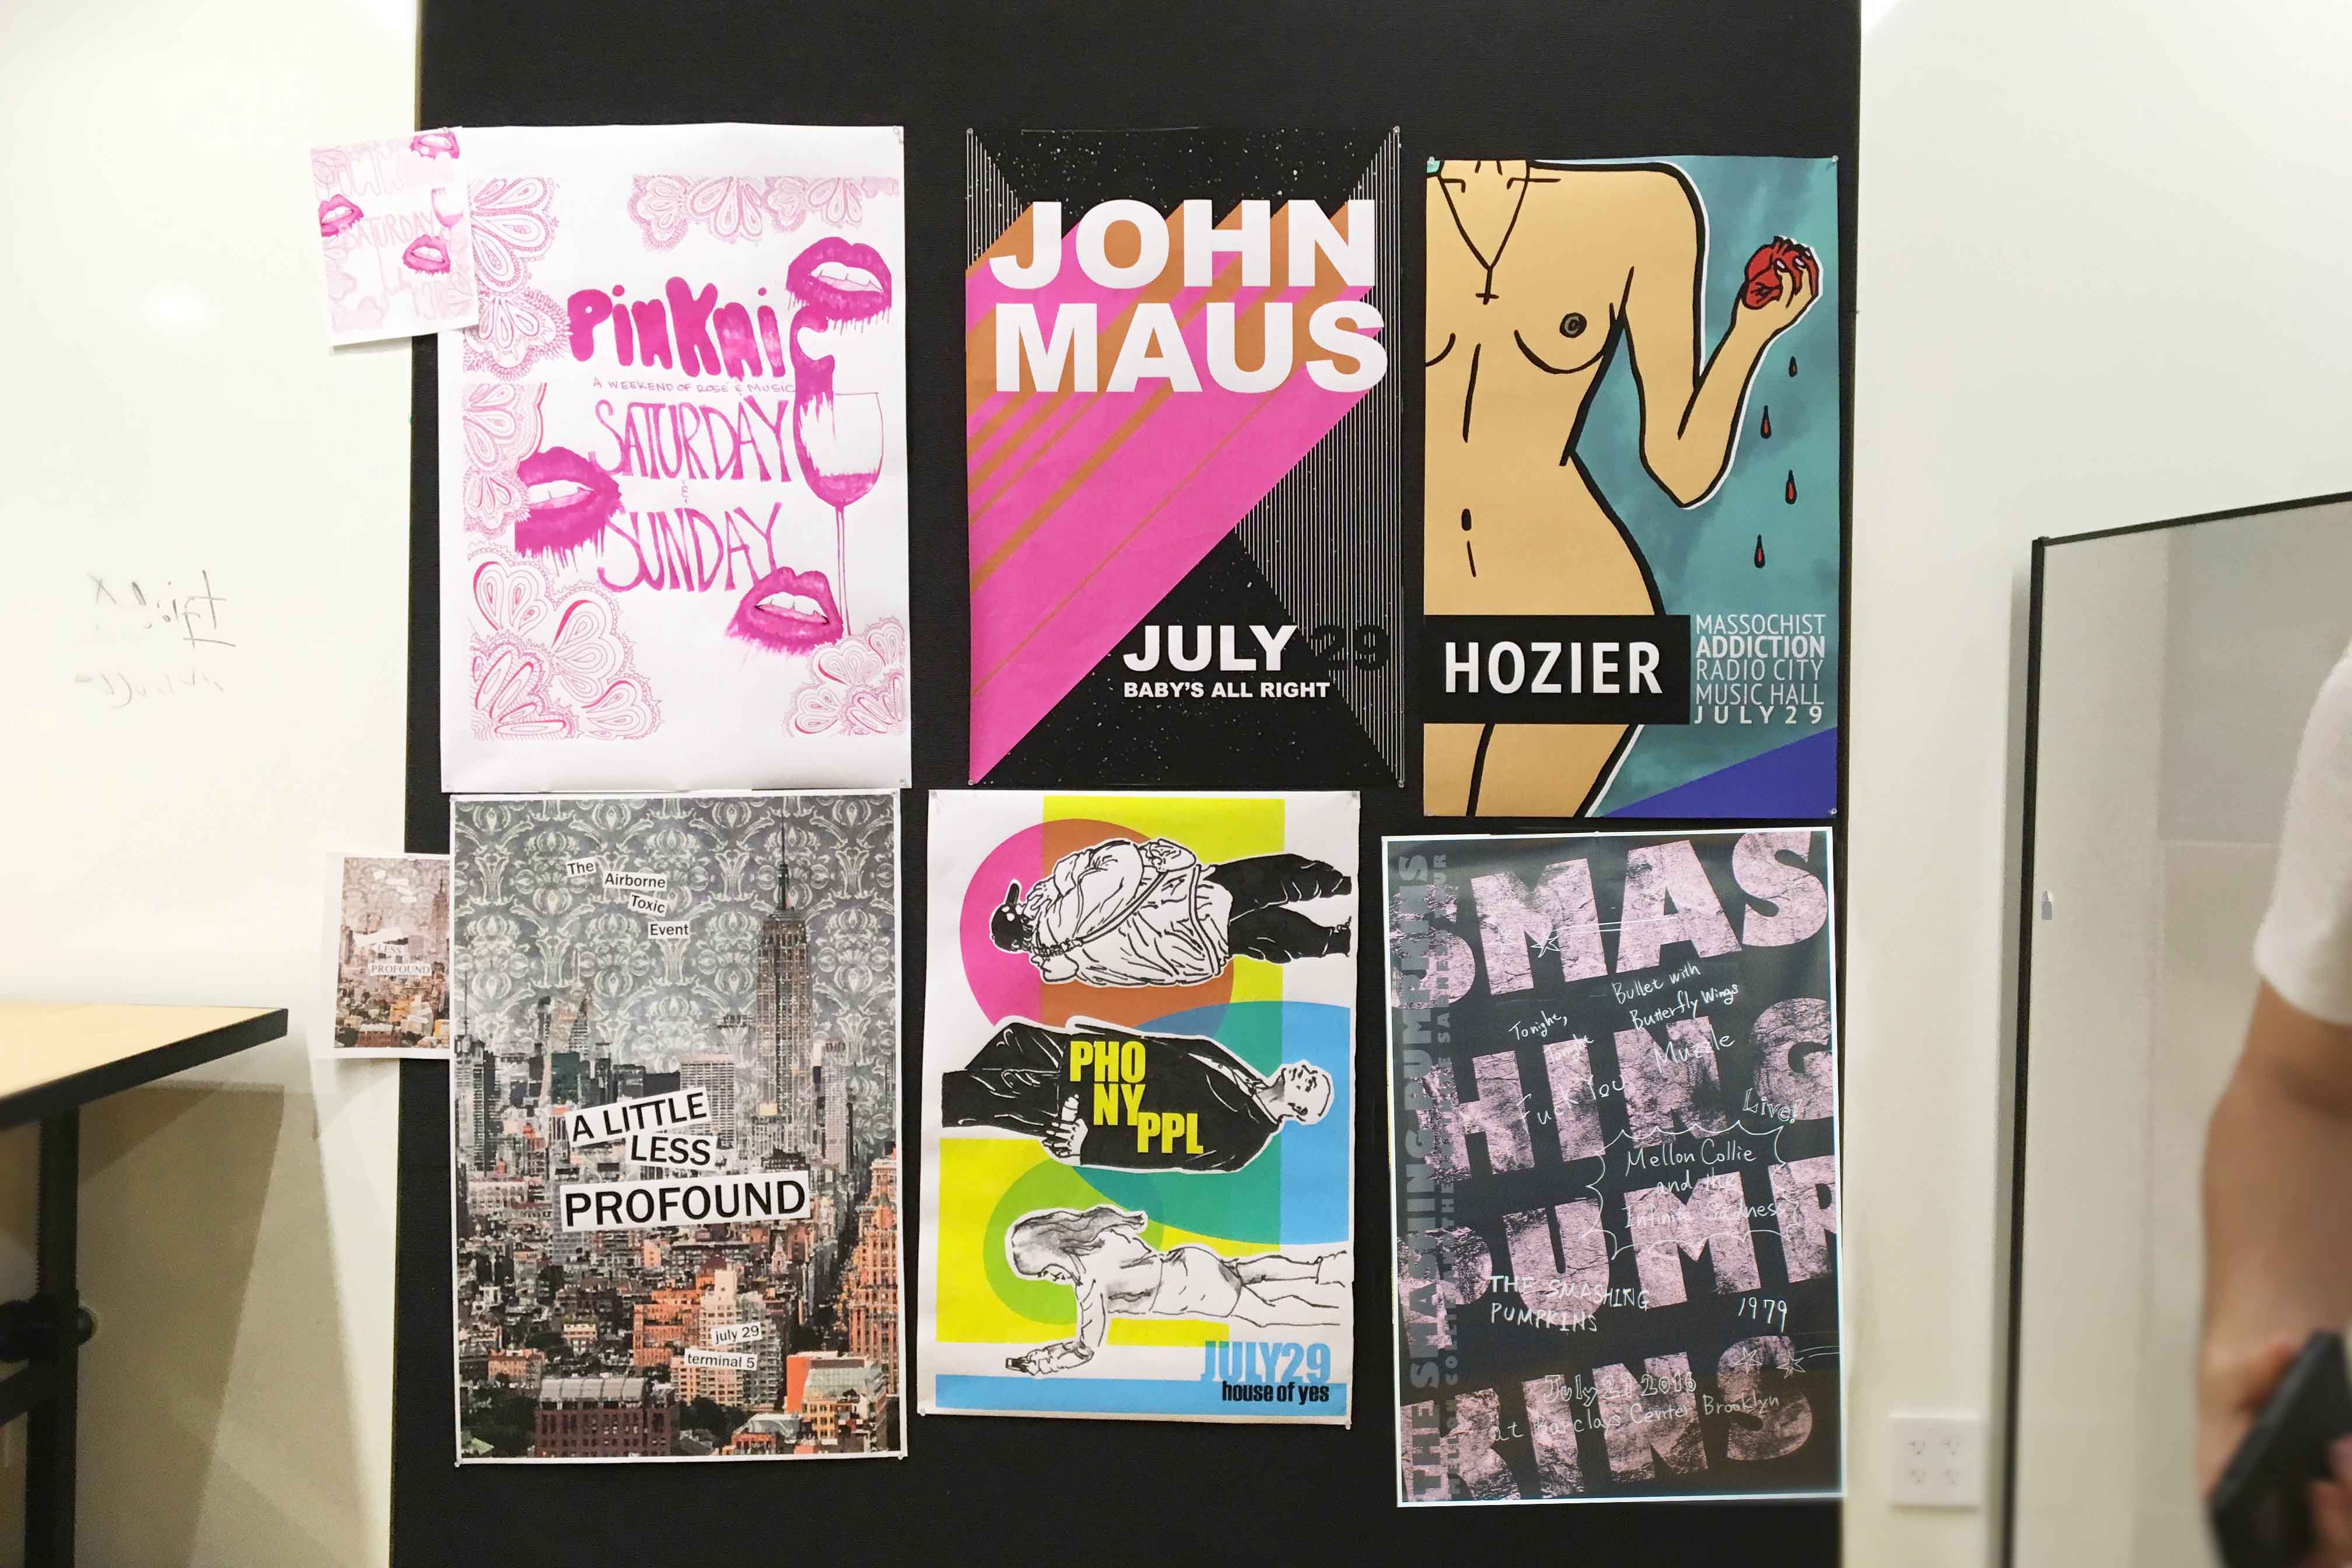 SATURDAY
PiNKNiC
A WEEKEND OF ROSÉ & MUSIC
SATURDAY
&
SUNDAY
JOHN
MAUS
JULY 29
BABY'S ALL RIGHT
HOZIER
MASSOCHIST
ADDICTION
RADIO CITY
MUSIC HALL
JULY 29
LESS
PROFOUND
The
Airborne
Toxic
Event
A LITTLE
LESS
PROFOUND
july 29
terminal 5
PHO
NY
PPL
JULY29
house of yes
THE SMASHING PUMPKINS
SMAS
HING
PUMP
KINS
Bullet with
Butterfly Wings
Tonight,
Tonight
Muzzle
Fuck You
Live!
Mellon Collie
and the
Infinite Sadness
THE SMASHING
PUMPKINS
1979
July 29 2016
at Barclays Center Brooklyn